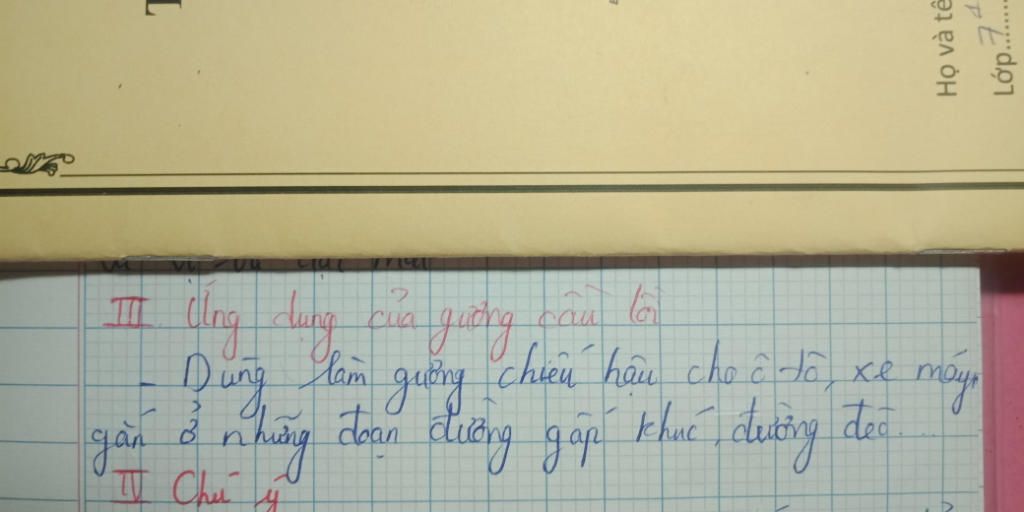 Họ và tê
Lớp 7
III Ứng dụng của gương cầu lồi
- Dùng làm gương chiếu hậu cho ô-tô, xe máy,
gắn ở những đoạn đường gấp khúc, đường đèo...
IV Chú ý